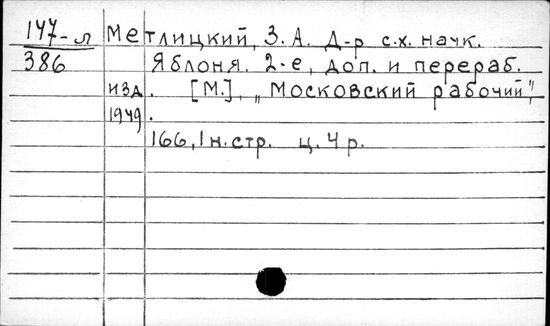 147-л
386
Метлицкий, З.А. Д-р с.х. наук.
Яблоня. 2-е, доп. и перераб.
изд. [М.], „Московский рабочий",
1949.
166, 1 н. стр. ц. 4 р.